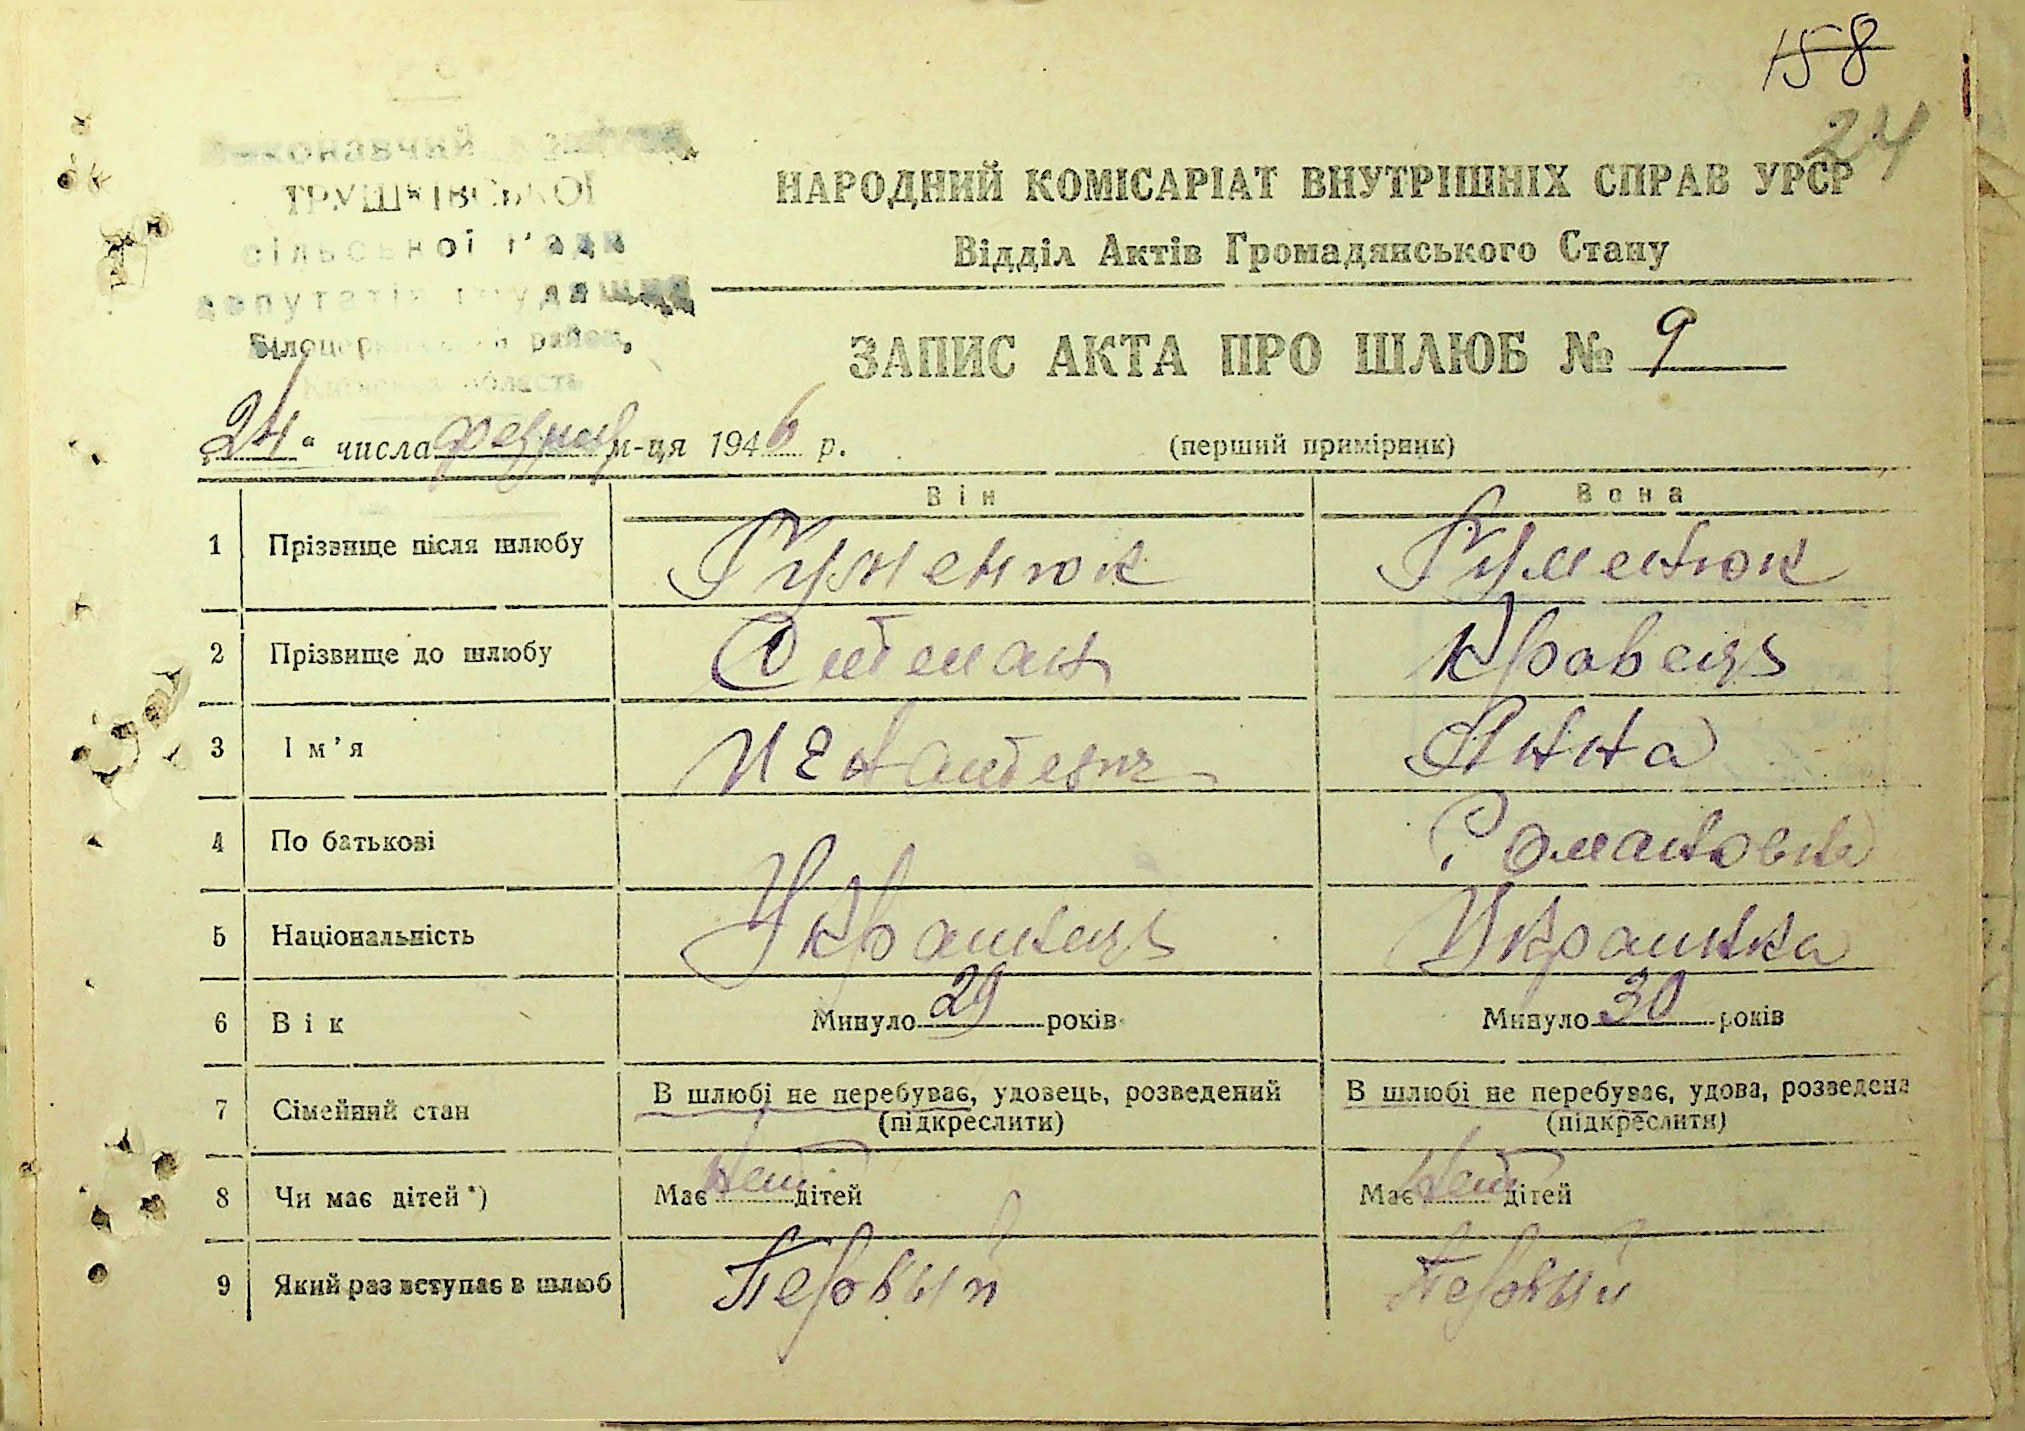 158
24
ТРУШКІВСЬКОЇ
сільської Ради
депутатів трудящих
район,
область
НАРОДНИЙ КОМІСАРІАТ ВНУТРІШНІХ СПРАВ УРСР
Відділ Актів Громадянського Стану
ЗАПИС АКТА ПРО ШЛЮБ № 9
„24“ числа м-ця 1946 р. (перший примірник)
Він Вона
1 Прізвище після шлюбу Гуменюк Гуменюк
2 Прізвище до шлюбу Кравець
3 Ім'я Анна
4 По батькові Романовна
5 Національність Украинець Украинка
6 Вік Минуло 29 років Минуло 30 років
7 Сімейний стан В шлюбі не перебуває, удовець, розведений В шлюбі не перебуває, удова, розведена
(підкреслити) (підкреслити)
8 Чи має дітей *) Має нет дітей Має нет дітей
9 Який раз вступає в шлюб Первый Первый